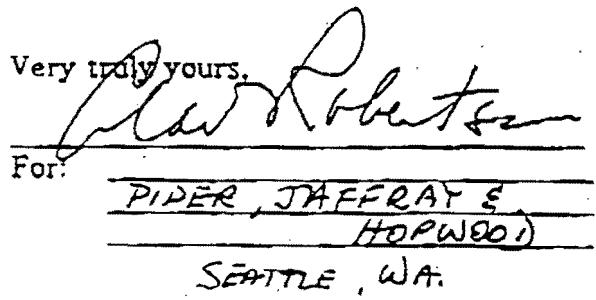 Very truly yours,
Robertson
For:
PIPER, JAFFRAY &
HOPWOOD
SEATTLE, WA.